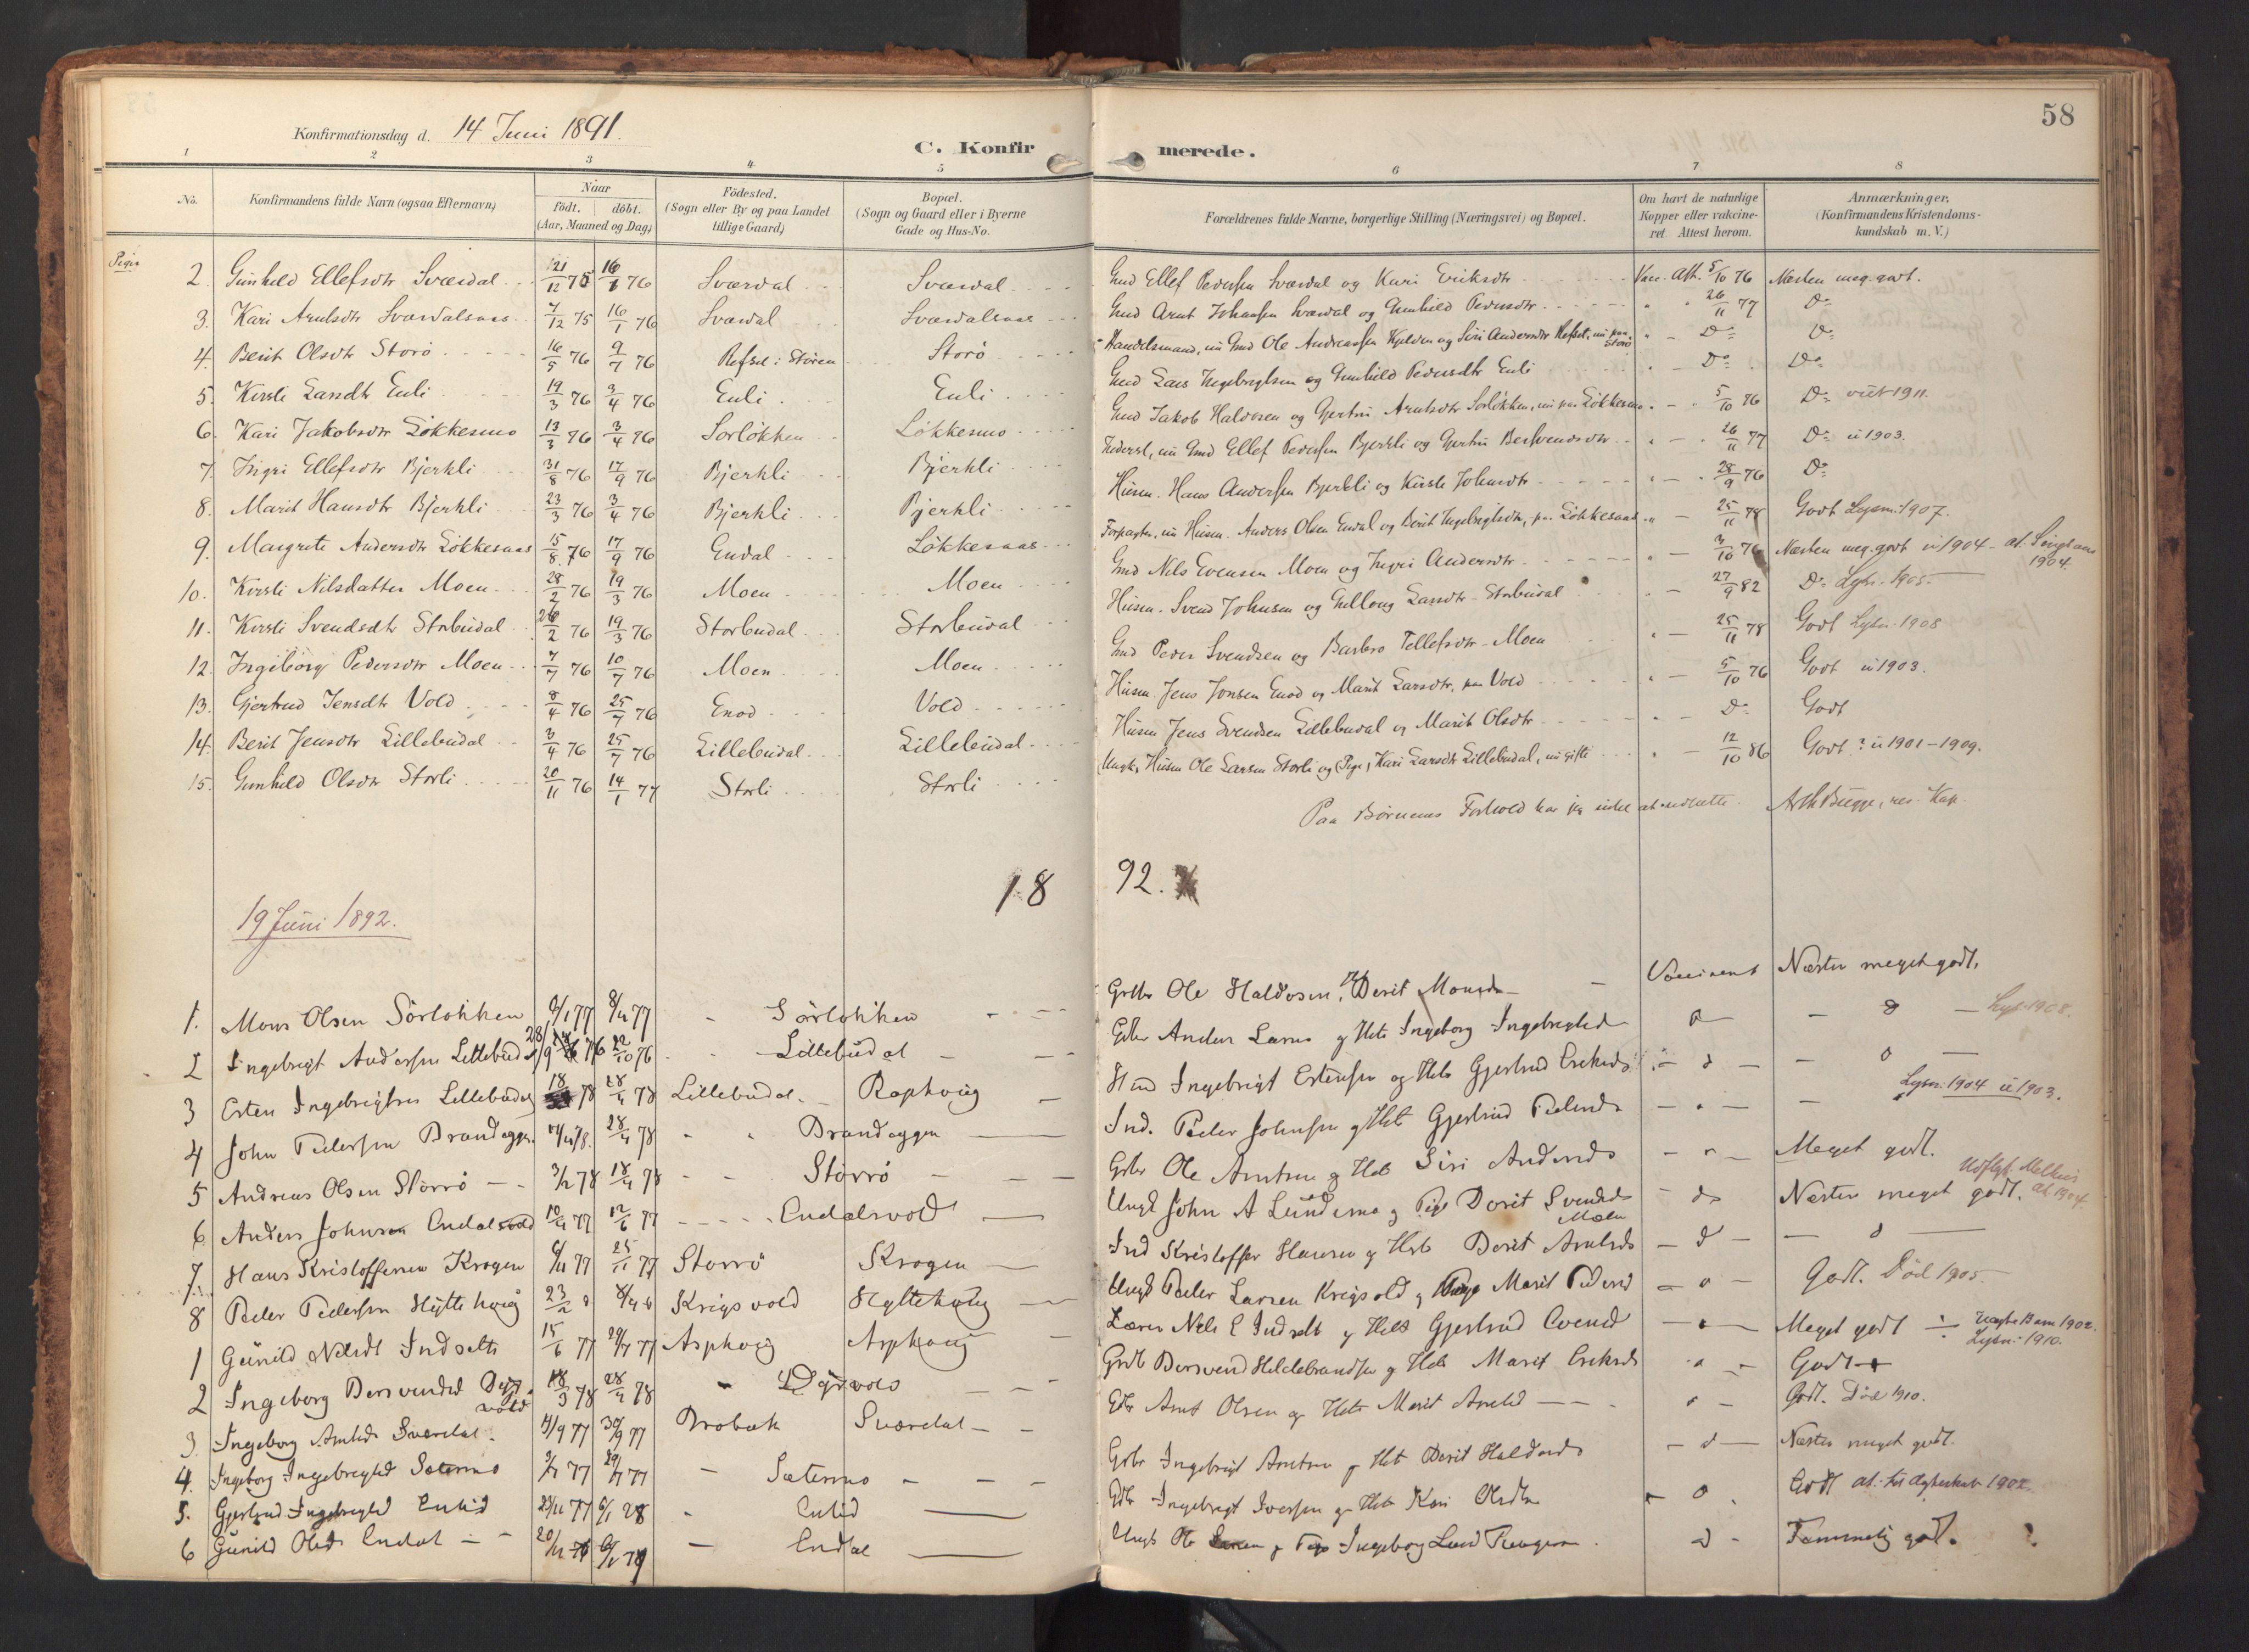 58
Konfirmationsdag d. 14 Juni 1891.
C. Konfirmerede.
1 2 3 4 5 6 7 8
No. Konfirmandens fulde Navn (ogsaa Efternavn) Naar födt. döbt. (Aar, Maaned og Dag) Födested. (Sogn eller By og paa Landet tillige Gaard) Bopæl. (Sogn og Gaard eller i Byerne Gade og Hus-No. Forældrenes fulde Navne, borgerlige Stilling (Næringsvei) og Bopæl. Om havt de naturlige Kopper eller vakcineret Attest herom. Anmærkninger, (Konfirmandens Kristendomskundskab m. V.)
Piger
2. Gunhild Ellefsdtr Sværdal 21/12 75 16/1 76 Sværdal Sværdal Gmd Ellef Pedersen Sværdal og Kari Eriksdtr Vacc. Att. 5/10 76 Næsten meg. godt.
3. Kari Arntsdtr Sværdalsaas 7/12 75 16/1 76 Sværdal Sværdalsaas Gmd Arnt Johansen Sværdal og Gunhild Pedersdtr 26/11 77 Do
4. Berit Olsdtr Storö 16/5 76 9/7 76 Refset i Stören Storö Handelsmand, nu Gmd Ole Andreassen Kjelden og Siri Andersdtr Refset, nu paa Storö Do Do
5. Kirsti Larsdtr Enli 19/3 76 3/4 76 Enli Enli Gmd Lars Ingebrigtsen og Gunhild Pedersdtr Enli Do Do
6. Kari Jakobsdtr Lökkesmo 13/3 76 3/4 76 Sorlökken Lökkesmo Gmd Jakob Haldosen og Gjertru Arntsdtr Sorlökken, nu paa Lökkesmo 5/10 76 Do viet 1911.
7. Ingri Ellefsdtr Bjerkli 31/8 76 17/9 76 Bjerkli Bjerkli Föderst, nu Gmd Ellef Pedersen Bjerkli og Gjertru Bersvendsdtr 26/11 77 Do u 1903.
8. Marit Hansdtr Bjerkli 23/3 76 3/4 76 Bjerkli Bjerkli Husm. Hans Andersen Bjerkli og Kirsti Johnsdtr 28/9 76 Do
9. Margrete Andersdtr Lökkesaas 15/8 76 17/9 76 Endal Lökkesaas Forpagter, nu Husm. Anders Olsen Endal og Berit Ingebrigtsdtr, paa Lökkesaas 25/11 78 Godt Lysn. 1907.
10. Kirsti Nilsdatter Moen 28/2 76 19/3 76 Moen Moen Gmd Nils Evensen Moen og Ingri Andersdtr 3/10 76 Næsten meg. godt u 1904 - at. Singsaas 1904.
11. Kirsti Svendsdtr Storbudal 26/2 76 19/3 76 Storbudal Storbudal Husm. Svend Johnsen og Gullaug Larsdtr Storbudal 27/9 82 Do Lysn. 1905.
12. Ingiborg Pedersdtr Moen 7/7 76 10/7 76 Moen Moen Gmd Peder Svendsen og Barbro Tellefsdtr Moen 25/11 78 Godt Lysn. 1908
13. Gjertrud Jensdtr Vold 8/4 76 25/7 76 Enod Vold Husm. Jens Jonsen Enod og Marit Larsdtr, paa Vold 5/10 76 Godt u 1903.
14. Berit Jensdtr Lillebudal 3/4 76 25/7 76 Lillebudal Lillebudal Husm Jens Svendsen Lillebudal og Marit Olsdtr Do Godt
15. Gunhild Olsdtr Storli 20/11 76 14/1 77 Storli Storli Ungk, Husm Ole Larsen Storli og (Pige) Kari Larsdtr Lillebudal, nu gifte 12/10 86 Godt? u 1901-1909.
Paa Börnenes Forhold har jeg intet at udsætte. Bugge, res. Kap.
1892.
19 Juni 1892.
1. Mons Olsen Sörlökken 9/1 77 8/4 77 Sörlökken Grbr Ole Haldosen, H Berit Monsd Vaccineret Næsten meget godt.
2 Ingebrigt Andersen Lillebudal 28/9 76 22/10 76 Lillebudal Gbr Anders Larsen og Hst Ingeborg Ingebrigtsd d d Lys. 1908.
3 Esten Ingebrigtsen Lillebudal 18 78 28/4 78 Lillebudal Raphoug Hmd Ingebrigt Estensen og Hst Gjertrud Eriksd d d
4 John Pedersen Brandeggen 28/4 78 Brandeggen Ind. Peder Johnsen og Hst Gjertrud Pedersd Lysn. 1904 u 1903.
5 Andreas Olsen Störrö 3/2 78 18/4 78 Störrö Grbr Ole Arntsen og Hst Siri Andersd Meget godt.
6 Anders Johnsen Endalsvold 10/4 77 12/6 77 Endalsvold Ungk John A Lundemo og Pige Dorit Svendsd Moen do Næsten meget godt. Udflgt. Melhus at. 1904
7. Hans Kristoffersen Krogen 6/11 77 25/11 77 Storrö Krogen Ind Kristoffer Hansen og Hst Berit Arntsd d d
8 Peder Pedersen Hyttehoug 23/2 Krigsvold Hyttehoug Ungk Peder Larsen Krigsvold og Pige Marit Pedersd Godt. Död 1905.
1 Gunild Nilsdt Indset 15/6 77 29/7 77 Asphoug Asphoug Lærer Nils E Indset og Hst Gjertrud Evensd Meget godt Uægte Barn 1902. Lysn. 1910.
2 Ingeborg Bersvendsd 18/3 78 28/4 78 Grdb Bersvend Hildebrandsen og Hst Marit Eriksd Godt
3. Ingeborg Arntsd Sværdal 14/9 77 30/9 77 Brobak Sværdal Gbr Arnt Olsen og Hst Marit Arntsd Godt. Död 1910.
4. Ingeborg Ingebrigtsd Sætermo 3/7 77 29/7 77 Sætermo Grbr Ingebrigt Arntsen og Hst Berit Haldosd d Næsten meget godt.
5. Gjertrud Ingebrigtsd Enlid 23/11 77 6/1 78 Enlid Gdbr Ingebrigt Iversen og Hst Kari Olsdtr Godt at. til Ægteskab 1902.
6 Gunild Olsd Endal 20/11 Endal Ungk Ole Larsen og Pige Ingeborg d Temmelig godt.